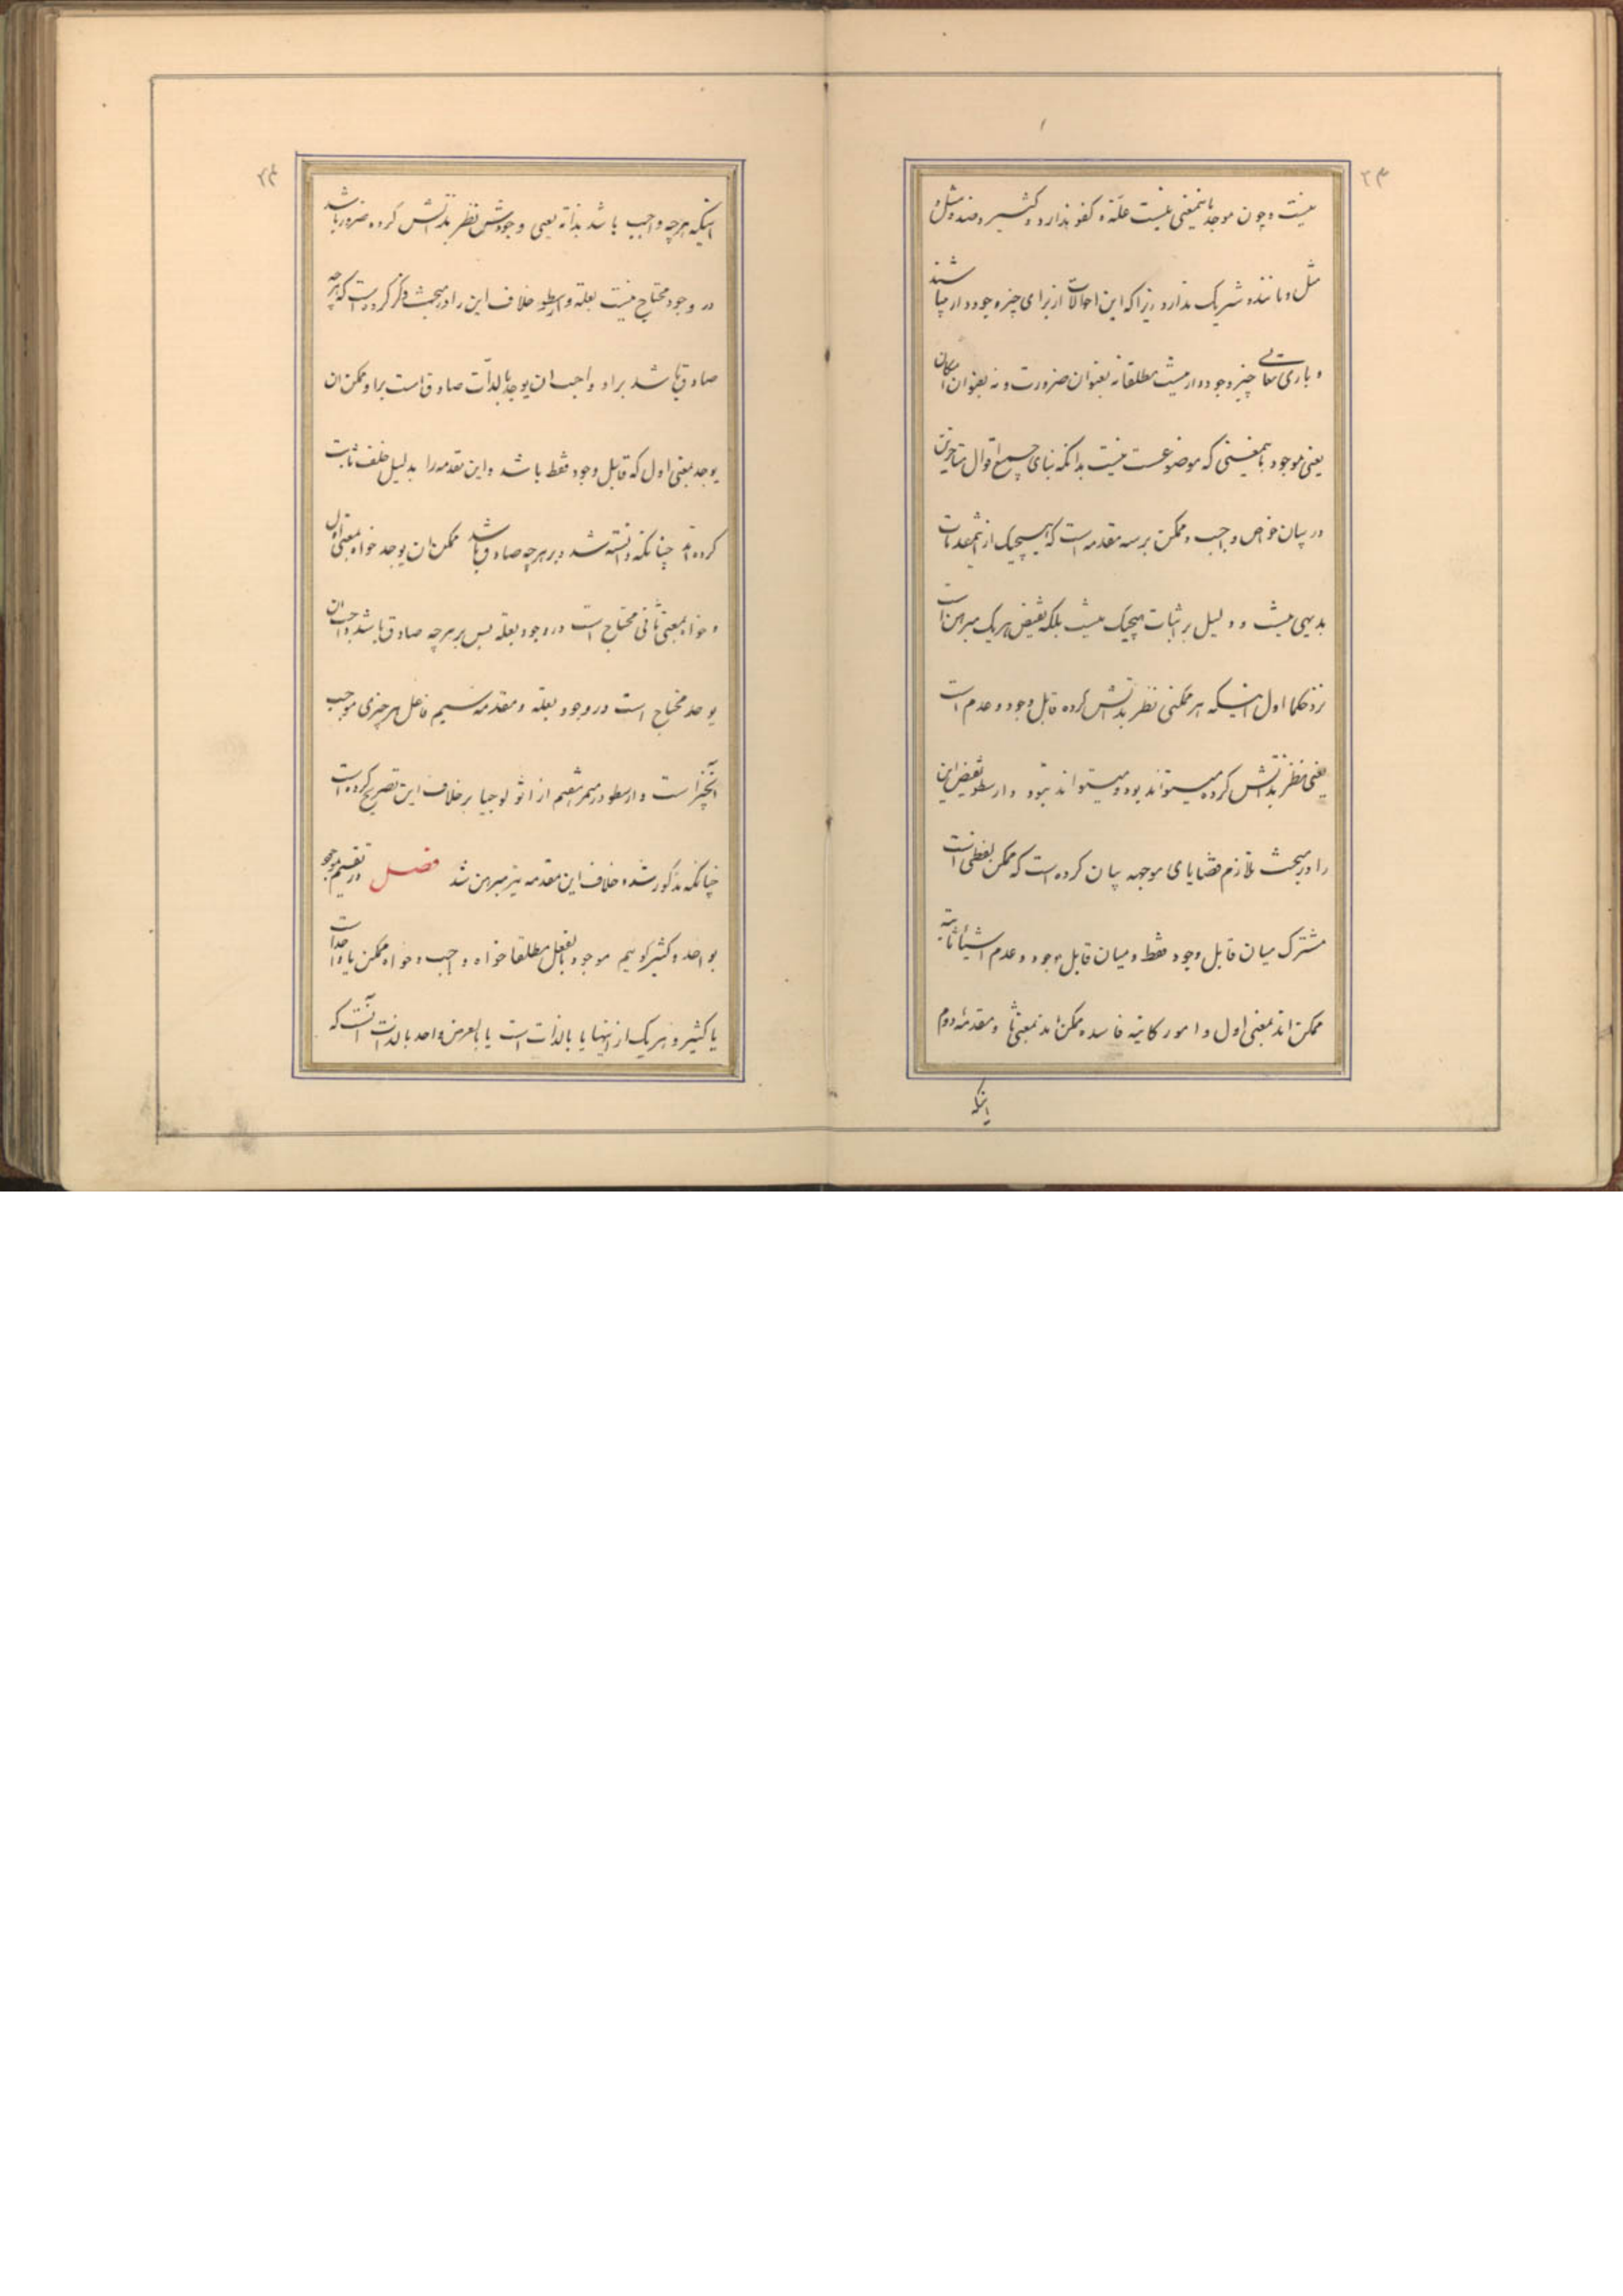 ۲۳
نیست و چون موجد باینمعنی نیست علّة و کفو ندارد و کثیر و ضد و مثل و
مثل و مانند و شریک ندارد زیرا که این احوالات از برای چیز وجوددار میباشند
و باری تعالی چیز وجوددار نیست مطلقا نه بعنوان ضرورت و نه بعنوان امکان
یعنی موجود باینمعنی که موضوعست نیست بدانکه بنای جمیع اقوال متاخرین
در بیان خواص واجب و ممکن بر سه مقدمه است که هیچیک از اینمقدمات
بدیهی نیست و دلیل بر اثبات هیچیک نیست بلکه نقیض هر یک مبرهن است
نزد حکما اول اینکه هر ممکنی نظر بذاتش کرده قابل وجود و عدم است
یعنی نظر بذاتش کرده میتواند بود و میتواند نبود و ارسطو نقیض این
را در مبحث تلازم قضایای موجهه بیان کرده است که ممکن لفظی است
مشترک میان قابل وجود فقط و میان قابل وجود و عدم اشیأ ثابته
ممکن اند بمعنی اول و امور کاینه فاسده ممکن اند بمعنی ثا و مقدمهٔ دوم
اینکه
۲۴
اینکه هر چه واجب باشد بذاته یعنی وجودش نظر بذاتش کرده ضرور باشد
در وجود محتاج نیست بعلة و ارسطو خلاف این را در مبحث ذکر کرده است که هر چه
صادق باشد براو واجب ان یوجد بالذات صادق است براو ممکن ان
یوجد بمعنی اول که قابل وجود فقط باشد و این مقدمه را بدلیل خلف ثابت
کرده اند چنانکه دانسته شد و بر هر چه صادق باشد ممکن ان یوجد خواه بمعنی اول
و خواه بمعنی ثانی محتاج است در وجود بعلة پس بر هر چه صادق باشد واجب ان
یوجد محتاج است در وجود بعلة و مقدمه سیم فاعل هر چیزی موجب
آنچیز است و ارسطو در میمر هشتم از اثولوجیا بر خلاف این تصریح کرده است
چنانکه مذکور شد و خلاف این مقدمه نیز مبرهن شد فصل در تقسیم موجود
بواحد و کثیر گوییم موجود بالفعل مطلقا خواه واجب و خواه ممکن یا واحد است
یا کثیر و هر یک از اینها یا بالذات است یا بالعرض واحد بالذات آنست که